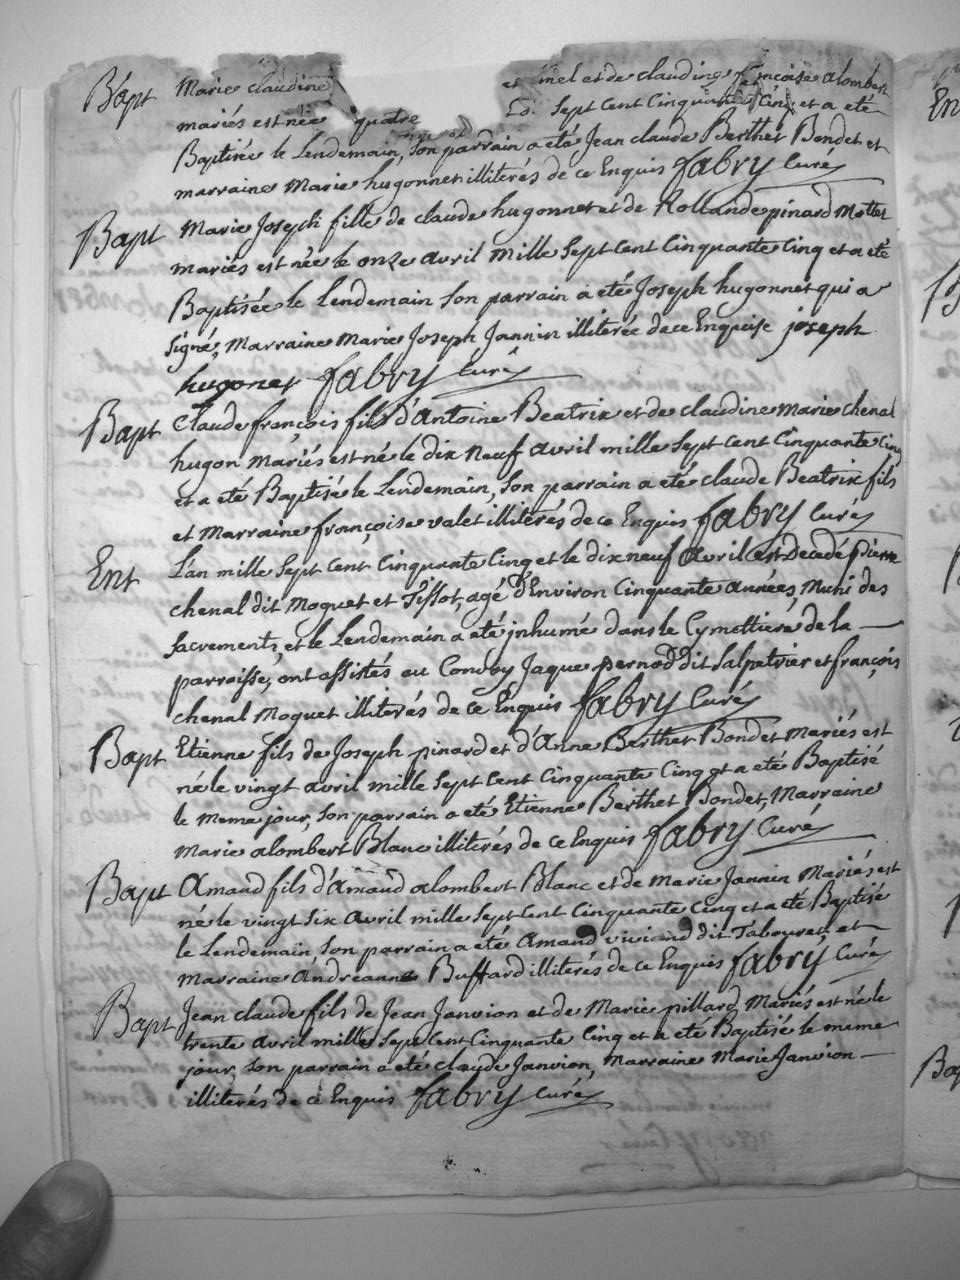 Bapt Marie claudine et de claudine françoise alombert
mariés est née quatre Sept Cent Cinquante Cinq et a eté
Baptisée le Lendemain, Son parrain a eté Jean claude Berthet Bondet et
marraine Marie hugonnet illiterés de ce Enquis fabry Curé
Bapt Marie Joseph fille de claude hugonnet et de Rollande pinard Mottet
mariés est née le onze avril Mille Sept Cent Cinquante Cinq et a eté
Baptisée le Lendemain Son parrain a eté Joseph hugonnet qui a
Signé, Marraine Marie Joseph Jannin illiterée de ce Enquise joseph
hugonet fabry Curé
Bapt Claude françois fils d'Antoine Beatrix et de claudine Marie chenal
hugon Mariés est né le dix Neuf avril mille Sept Cent Cinquante Cinq
et a eté Baptisé le Lendemain, Son parrain a eté claude Beatrix fils
et Marraine françoise valet illiterés de ce Enquis fabry Curé
Ent L'an mille Sept Cent Cinquante Cinq et le dix neuf avril est Decedé pierre
chenal dit Moquet et Tissot, agé d'Environ Cinquante années, Muni des
Sacrements, et le Lendemain a eté jnhumé dans le Cymettiere de la
parroisse, ont assistés au Convoy Jaque pernod dit Salpetrier et françois
chenal Moquet illiterés de ce Enquis fabry Curé
Bapt Etienne fils de Joseph pinard et d'Anne Berthet Bondet Mariés est
né le vingt avril mille Sept Cent Cinquante Cinq et a eté Baptisé
le meme jour, Son parrain a eté Etienne Berthet Bondet, Marraine
Marie alombert Blanc illiterés de ce Enquis fabry Curé
Bapt Amand fils d'Amand alombert Blanc et de Marie Jannin Mariés est
né le vingt Six avril mille Sept Cent Cinquante Cinq et a eté Baptisé
le Lendemain, Son parrain a eté Amand viviand dit Tabouret, et
marraine Andreanne Buffard illiterés de ce Enquis fabry Curé
Bapt Jean claude fils de Jean Janvion et de Marie pillard Mariés est né le
trente avril mille Sept Cent Cinquante Cinq et a eté Baptisé le meme
jour, Son parrain a eté claude Janvion, Marraine Marie Janvion
illiterés de ce Enquis fabry Curé